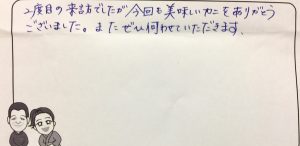 2度目の来訪でしたが今回も美味しいカニをありがとう
ございました。またぜひ伺わせていただきます。